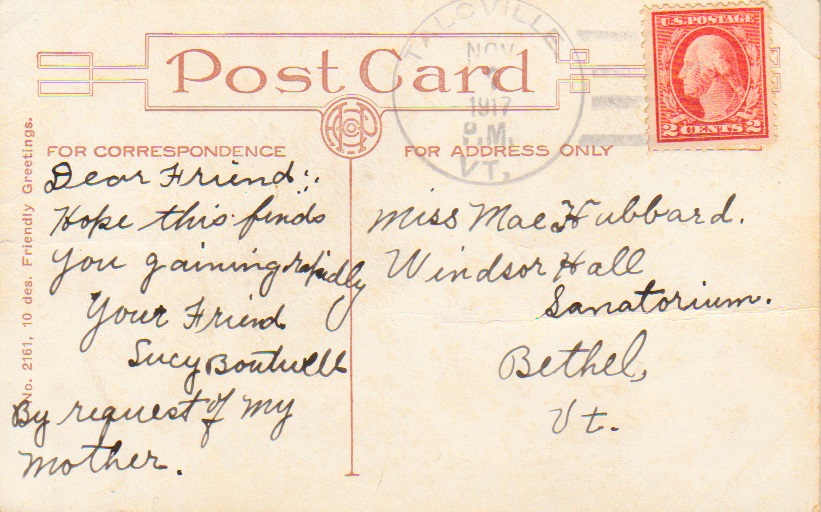 Post Card
TALCVILLE
NOV
7
1917
P.M.
VT.
U.S. POSTAGE
2 CENTS 2
FOR CORRESPONDENCE
FOR ADDRESS ONLY
Dear Friend:.
Hope this finds
you gaining rapidly
Your Friend
Lucy Boutwell
By request of my
mother.
Miss Mae Hubbard.
Windsor Hall
Sanatorium.
Bethel,
Vt.
No. 2161, 10 des. Friendly Greetings.